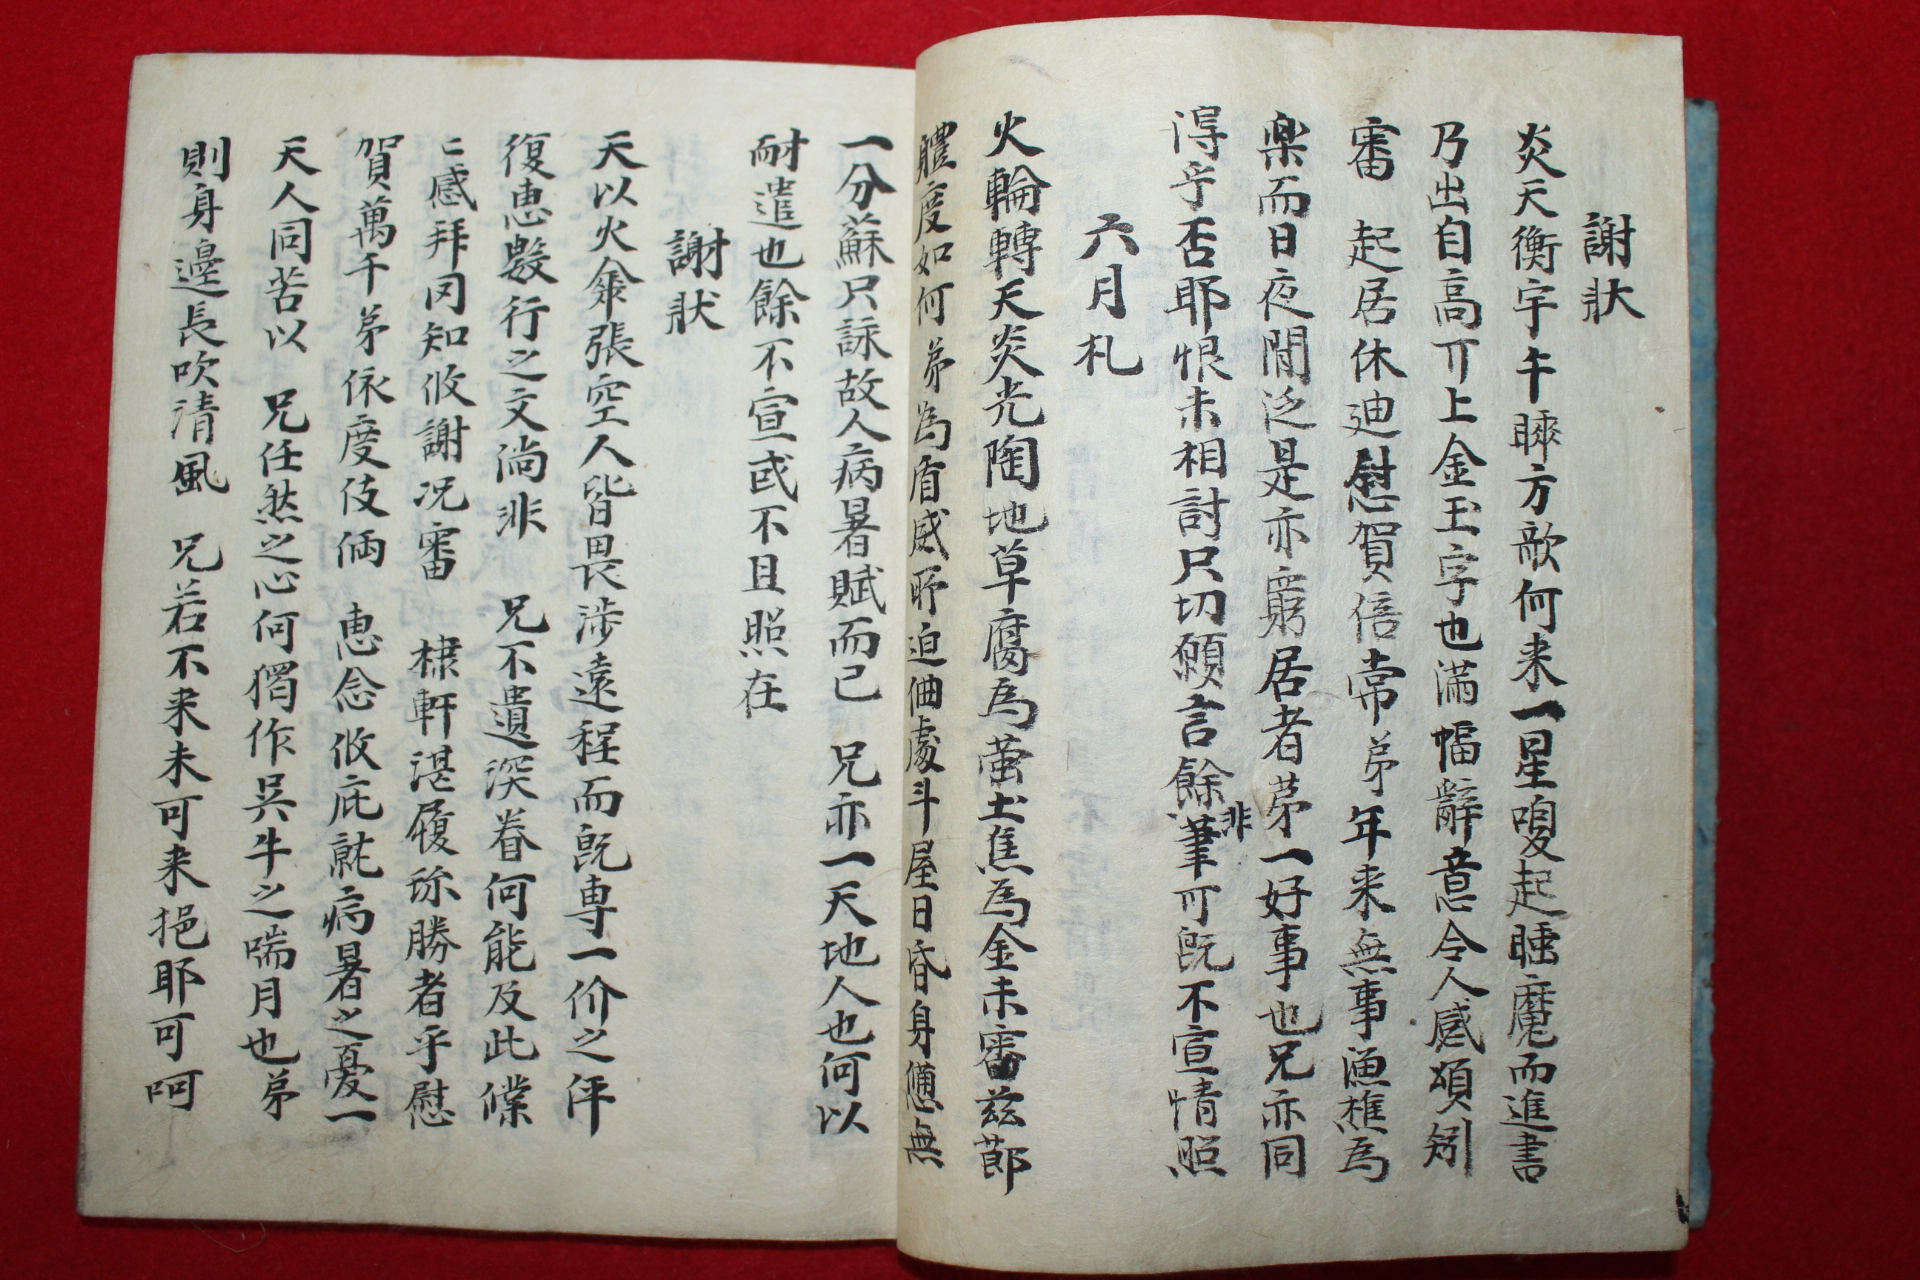 謝狀
炎天衡宇午睡方歌何来一星嗄起睡魔而進書
乃出自高丌上金玉字也滿幅辭意令人感頌矧
審 起居休迪慰賀倍常弟年来無事漁樵為
楽而日夜閒泛是亦窮居者苐一好事也兄亦同
得乎否耶恨未相討只切願言餘非筆可旣不宣情照
六月札
火輪轉天炎光陶地草腐為螢土焦為金未審茲節
軆度如何弟為盾威所迫佃處斗屋日昏身憊無
一分蘇只詠故人病暑賦而已 兄亦一天地人也何以
耐遣也餘不宣或不且照在
謝狀
天以火傘張空人皆畏涉遠程而旣專一价之伻
復惠數行之文淌非 兄不遺深眷何能及此儻
〻感拜罔知攸謝况審 棣軒湛履珎勝者乎慰
賀萬千弟依度伎倆 惠念攸庇就病暑之憂一
天人同苦以 兄任煞之心何獨作吳牛之喘月也弟
則身邊長吹清風 兄若不来未可来挹耶可呵